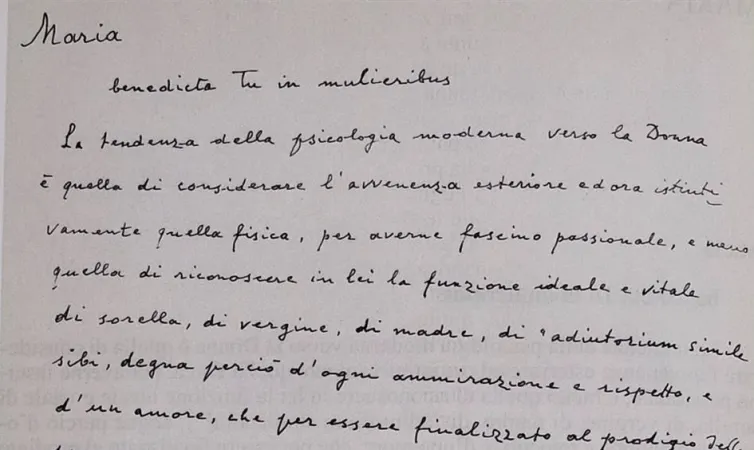 Maria
benedicta Tu in mulieribus
La tendenza della psicologia moderna verso la Donna
è quella di considerare l'avvenenza esteriore ed ora istinti
vamente quella fisica, per averne fascino passionale, e meno
quella di riconoscere in lei la funzione ideale e vitale
di sorella, di vergine, di madre, di "adiutorium simile
sibi, degna perciò d'ogni ammirazione e rispetto, e
d'un amore, che per essere finalizzato al prodigio